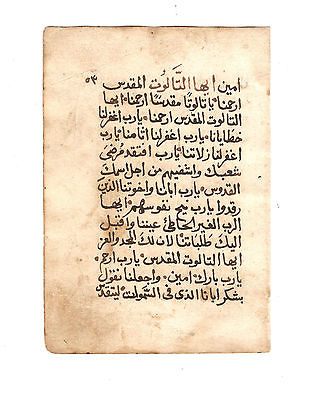 ٥٣
امين ايها التَّالوُت المقدس
ارحمنا يا تالوتًا مقدسًا ارحمنا ايها
التالوت المقدس ارحمنا يارب اغفر لنا
خطايانا يارب اغفر لنا اتامنا يارب
اغفر لنا زلاتنا يارب افتقد مرضى
شعبك واشفيهم من اجل اسمك
القدوس يارب ابانا واخوتنا الذين
رقدوا يارب نيح نفوسهم ايها
الرب الغير الخاطي عيننا واقبل
اليك طلباتنا لان لك المجد والعز
ايها التالوت المقدس يارب ارحم
يارب بارك امين واجعلنا نقول
بشكر ابانا الذى فى السَّموات ليتقدس